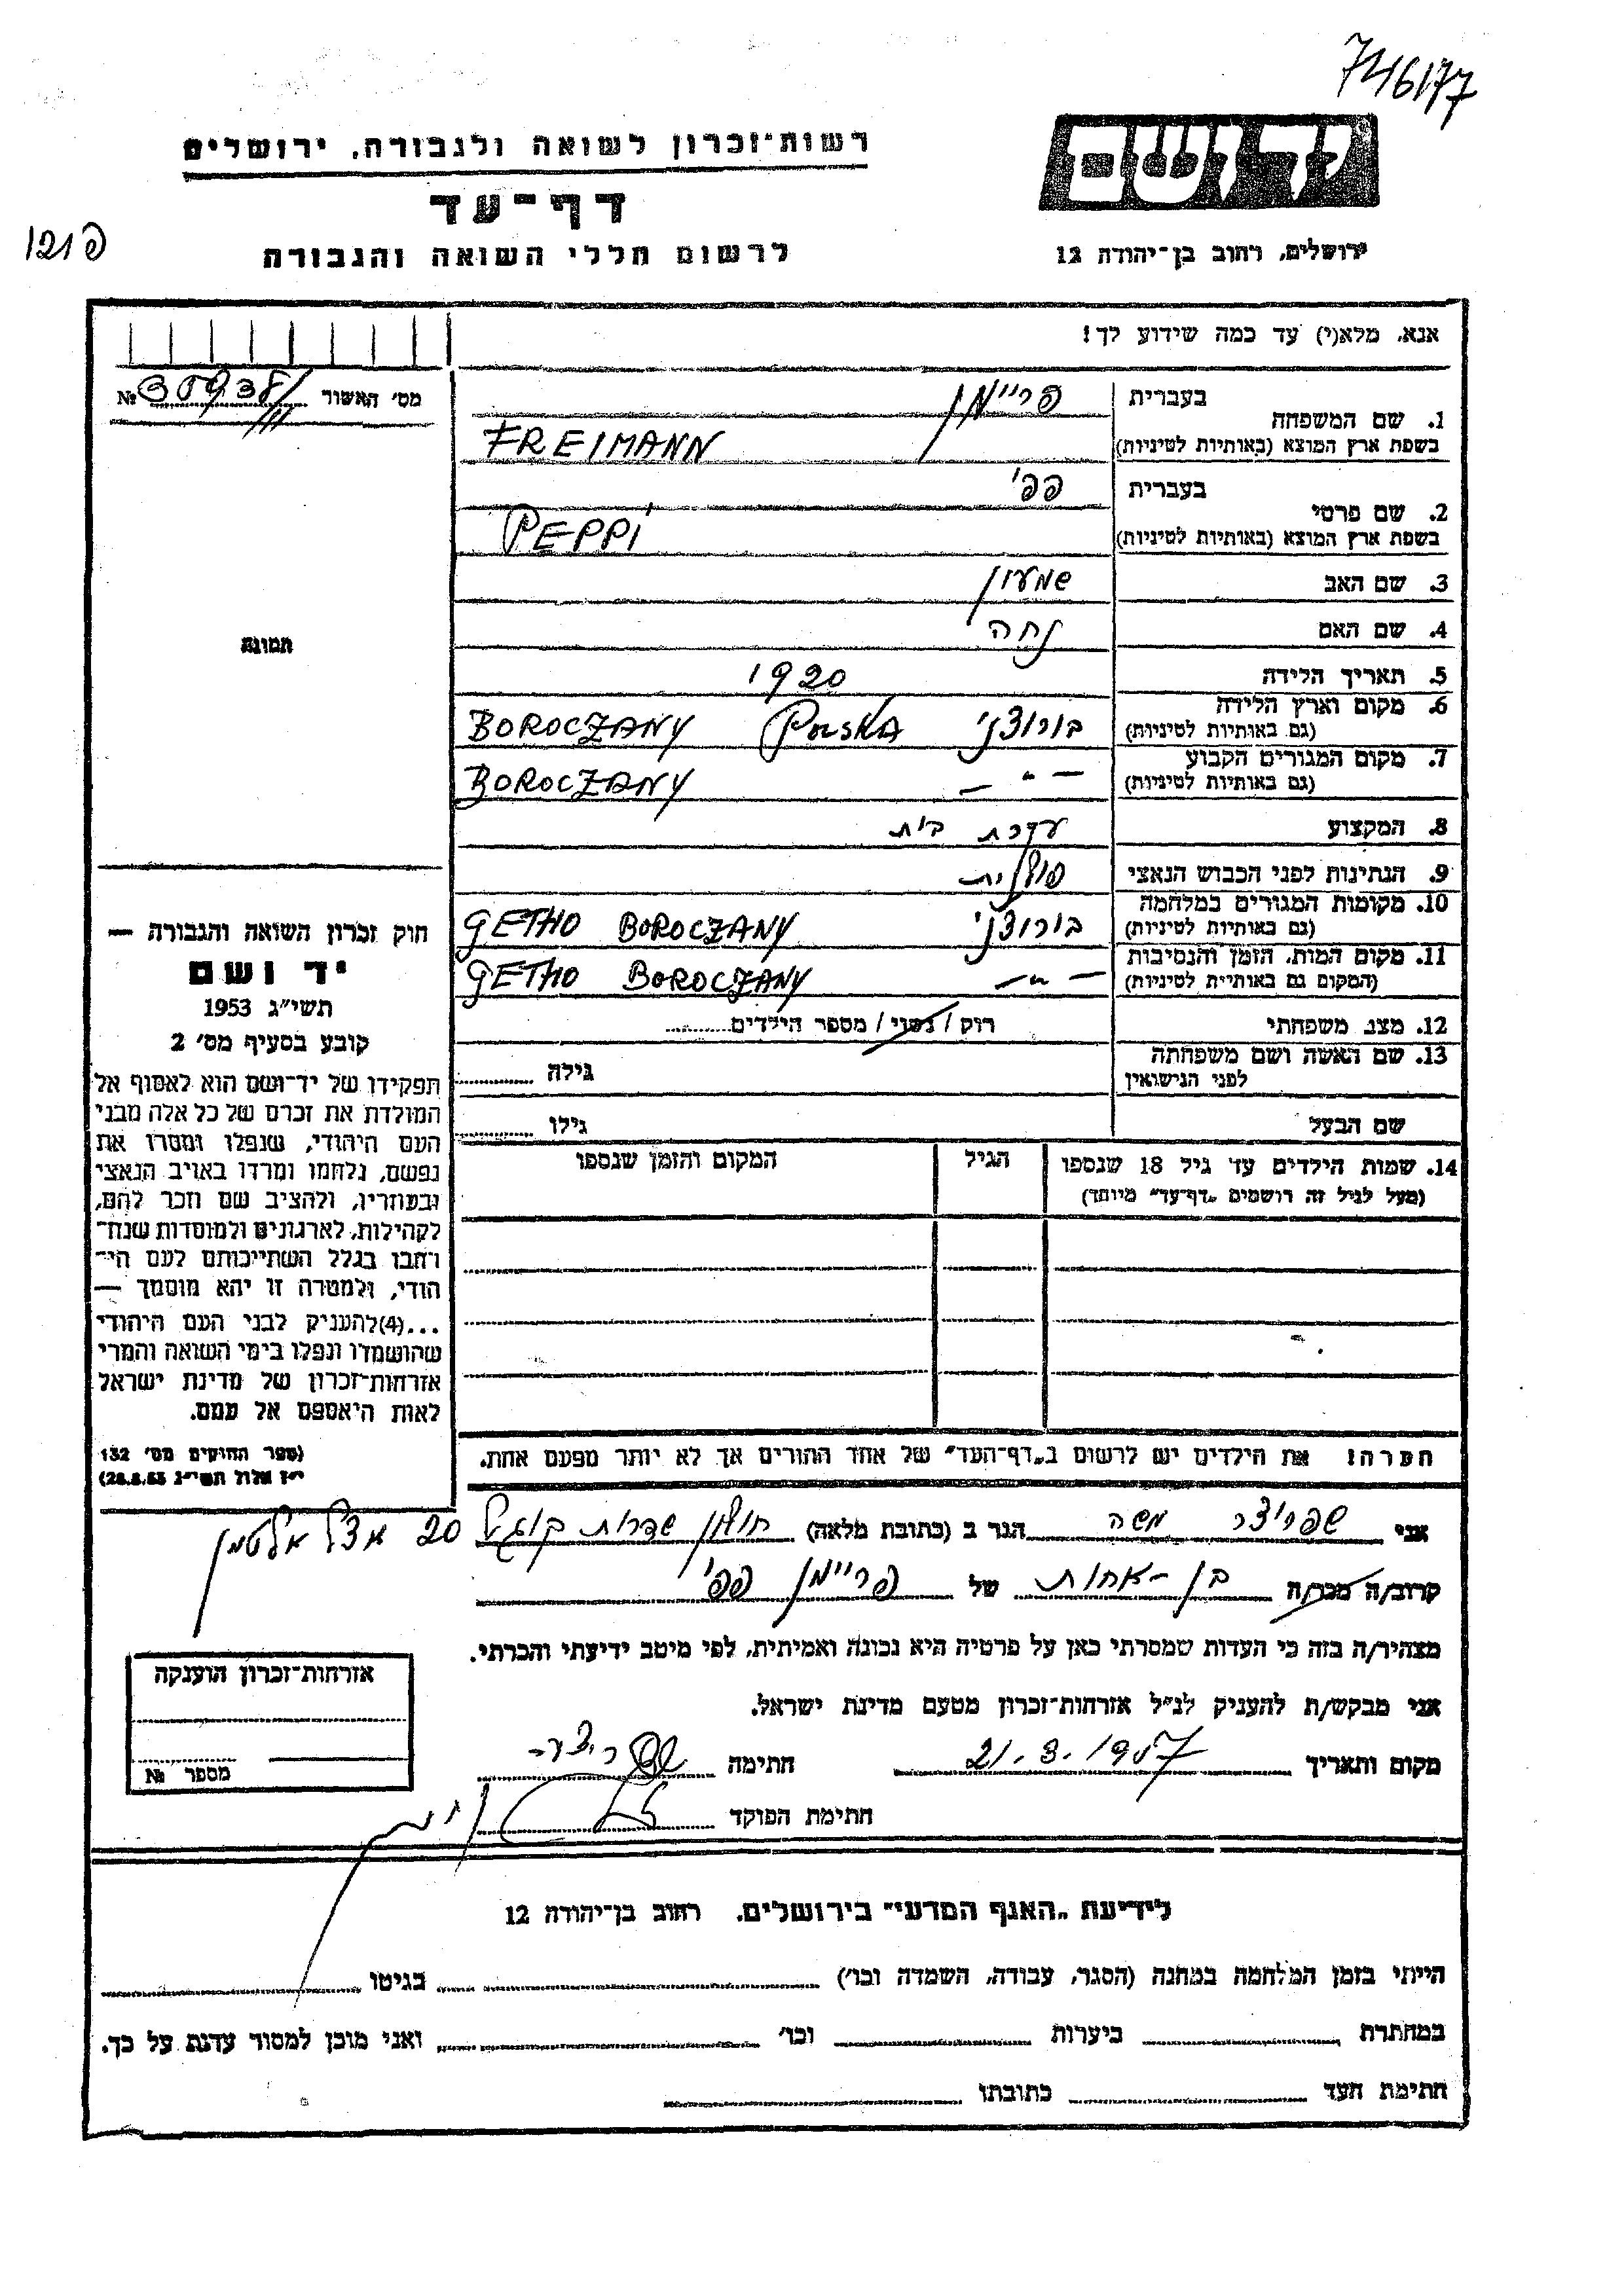 746177
יד ושם
רשות־זכרון לשואה ולגבורה, ירושלים
דף־עד
לרשום חללי השואה והגבורה
ירושלים, רחוב בן־יהודה 12
פ 121
אנא, מלא(י) עד כמה שידוע לך!
מס׳ האשור №
1. שם המשפחה
בעברית פריימן
בשפת ארץ המוצא (באותיות לטיניות) FREIMANN
2. שם פרטי
בעברית פפי
בשפת ארץ המוצא (באותיות לטיניות) PEPPI
3. שם האב שמעון
4. שם האם נחה
5. תאריך הלידה 1920
6. מקום וארץ הלידה
(גם באותיות לטיניות) בורוצני POLSKA BOROCZANY
7. מקום המגורים הקבוע
(גם באותיות לטיניות) — " — BOROCZANY
8. המקצוע עקרת בית
9. הנתינות לפני הכבוש הנאצי פולנית
10. מקומות המגורים במלחמה
(גם באותיות לטיניות) בורוצני GETHO BOROCZANY
11. מקום המות, הזמן והנסיבות
(המקום גם באותיות לטיניות) — " — GETHO BOROCZANY
12. מצב משפחתי רוק / נשוי / מספר הילדים
13. שם האשה ושם משפחתה
לפני הנישואין גילה
שם הבעל גילו
14. שמות הילדים עד גיל 18 שנספו הגיל המקום והזמן שנספו
(מעל לגיל זה רושמים „דף־עד״ מיוחד)
תמונה
חוק זכרון השואה והגבורה —
יד ושם
תשי״ג 1953
קובע בסעיף מס׳ 2
תפקידו של יד־ושם הוא לאסוף אל
המולדת את זכרם של כל אלה מבני
העם היהודי, שנפלו ומסרו את
נפשם, נלחמו ומרדו באויב הנאצי
ובעוזריו, ולהציב שם וזכר להם,
לקהילות, לארגונים ולמוסדות שנח־
רחבו בגלל השתייכותם לעם הי־
הודי, ולמטרה זו יהא מוסמך —
...(4)להעניק לבני העם היהודי
שהושמדו ונפלו בימי השואה והמרי
אזרחות־זכרון של מדינת ישראל
לאות היאספם אל עמם.
(ספר החוקים מס׳ 132
י״ז אלול תשי״ג 28.8.53)
הערה! את הילדים יש לרשום ב„דף־העד״ של אחד ההורים אך לא יותר מפעם אחת.
אני שפריצר משה הגר ב (כתובת מלאה) חולון שדרות קוגל 20 אצל אלטמן
קרוב/ה מכר/ה בן-אחות של פריימן פפי
מצהיר/ה בזה כי העדות שמסרתי כאן על פרטיה היא נכונה ואמיתית, לפי מיטב ידיעתי והכרתי.
אני מבקש/ת להעניק לנ״ל אזרחות־זכרון מטעם מדינת ישראל.
מקום ותאריך 21.3.1957 חתימה שפריצר
חתימת הפוקד
אזרחות־זכרון הוענקה
מספר №
לידיעת „האגף המדעי״ בירושלים, רחוב בן־יהודה 12
הייתי בזמן המלחמה במחנה (הסגר, עבודה, השמדה וכו׳) בגיטו
במחתרת ביערות וכו׳ ואני מוכן למסור עדות על כך.
חתימת העד כתובתו